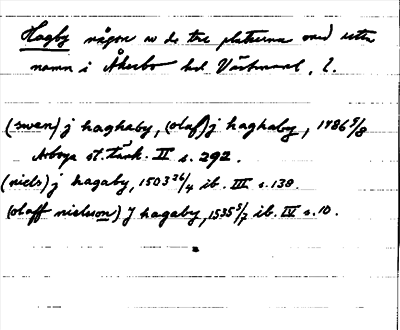 Hagby någon av de tre platserna med detta
namn i Åkerbo hd. Västmanl. l.
(swen) j haghaby, (olaf) j haghaby, 1486 5/8
Arboga st. tänk. II s. 292.
(niels) j hagaby, 1503 26/4 ib. III s. 138.
(olaff nielsson) J hagaby, 1535 5/7 ib. IV s. 10.